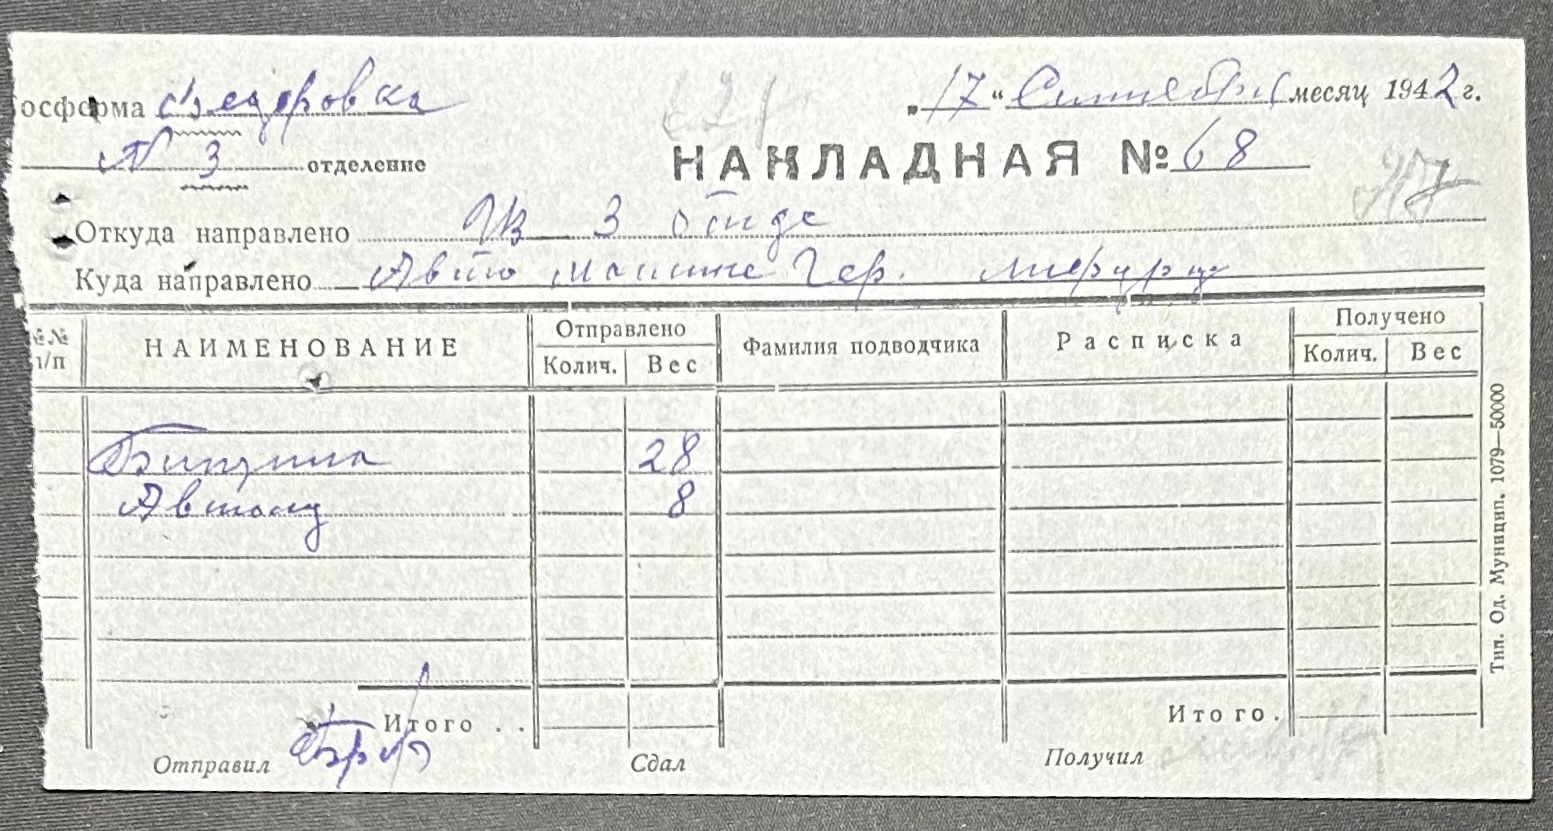 осформа Федоровка „17“ Сентебря месяц 1942 г.
№ 3 отделение НАКЛАДНАЯ № 68
Откуда направлено Из 3 отде
Куда направлено Авто машине Гер.
№№ п/п НАИМЕНОВАНИЕ Отправлено Колич. Вес Фамилия подводчика Расписка Получено Колич. Вес
Бинзина 28
Автолу 8
Итого . . Итого.
Отправил Сдал Получил
Тип. Од. Муницип. 1079—50000